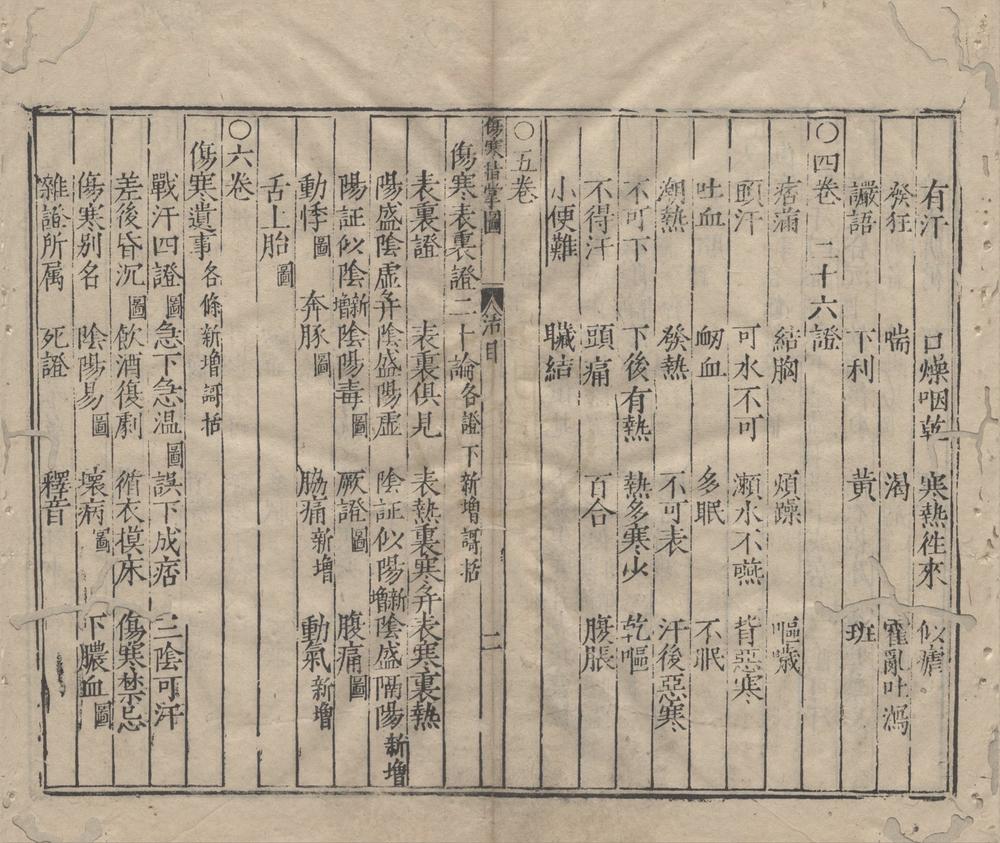 有汗　口燥咽乾　寒熱徃來　似瘧
發狂　喘　渴　霍亂吐瀉
讝語　下利　黃　班
〇四卷　二十六證
痞痛　結胸　煩躁　嘔噦
頭汗　可水不可　潄水不嚥　背惡寒
吐血　衂血　多眠　不眠
潮熱　發熱　不可表　汗後惡寒
不可下　下後有熱　熱多寒少　乾嘔
不得汗　頭痛　百合　腹脹
小便難　臟結
〇五卷
傷寒指掌圖　目　二
傷寒表裏證二十論各證下新增謌括
表裏證　表裏俱見　表熱裏寒并表寒裏熱
陽盛陰虛并陰盛陽虛　陰証似陽新增陰盛隔陽新增
陽証似陰新增陰陽毒圖　厥證圖　腹痛圖
動悸圖　奔豚圖　脇痛新增　動氣新增
舌上胎圖
〇六卷
傷寒遺事各條新增謌括
戰汗四證圖急下急温圖誤下成痞　三陰可汗
差後昏沉圖飲酒復劇　循衣摸床　傷寒禁忌
傷寒别名　陰陽易圖　壞病圖　下膿血圖
雜證所属　死證　釋音